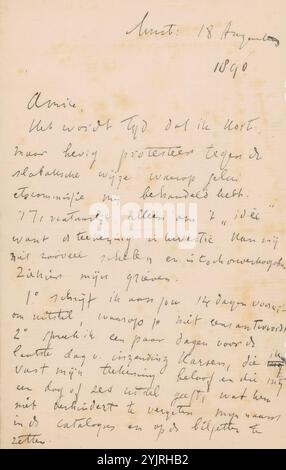 Amst: 18 Augustus
1890
Amice,
Het wordt tijd dat ik kort
maar hevig protesteer tegen de
wijze waarop jelui
mij behandeld hebt.
't Is natuurlijk alleen om 't "idée"
want de teekening kan mij
niet zooveel schelen en is toch
Ziehier mijn grieven.
1° schrijf ik aan jou 14 dagen vooruit
om uitstel, waarop je niet eens antwoordt
2° spreek ik een paar dagen voor de
laatste dag v. inzending Karsen, die
vast mijn teekening belooft en die mij
een dag of zes uitstel geeft, wat hem
niet verhindert te vergeten mijn naam
in de catalogus en op de biljetten te
zetten.
alamy
Image ID: 2YJRHB2
www.alamy.com